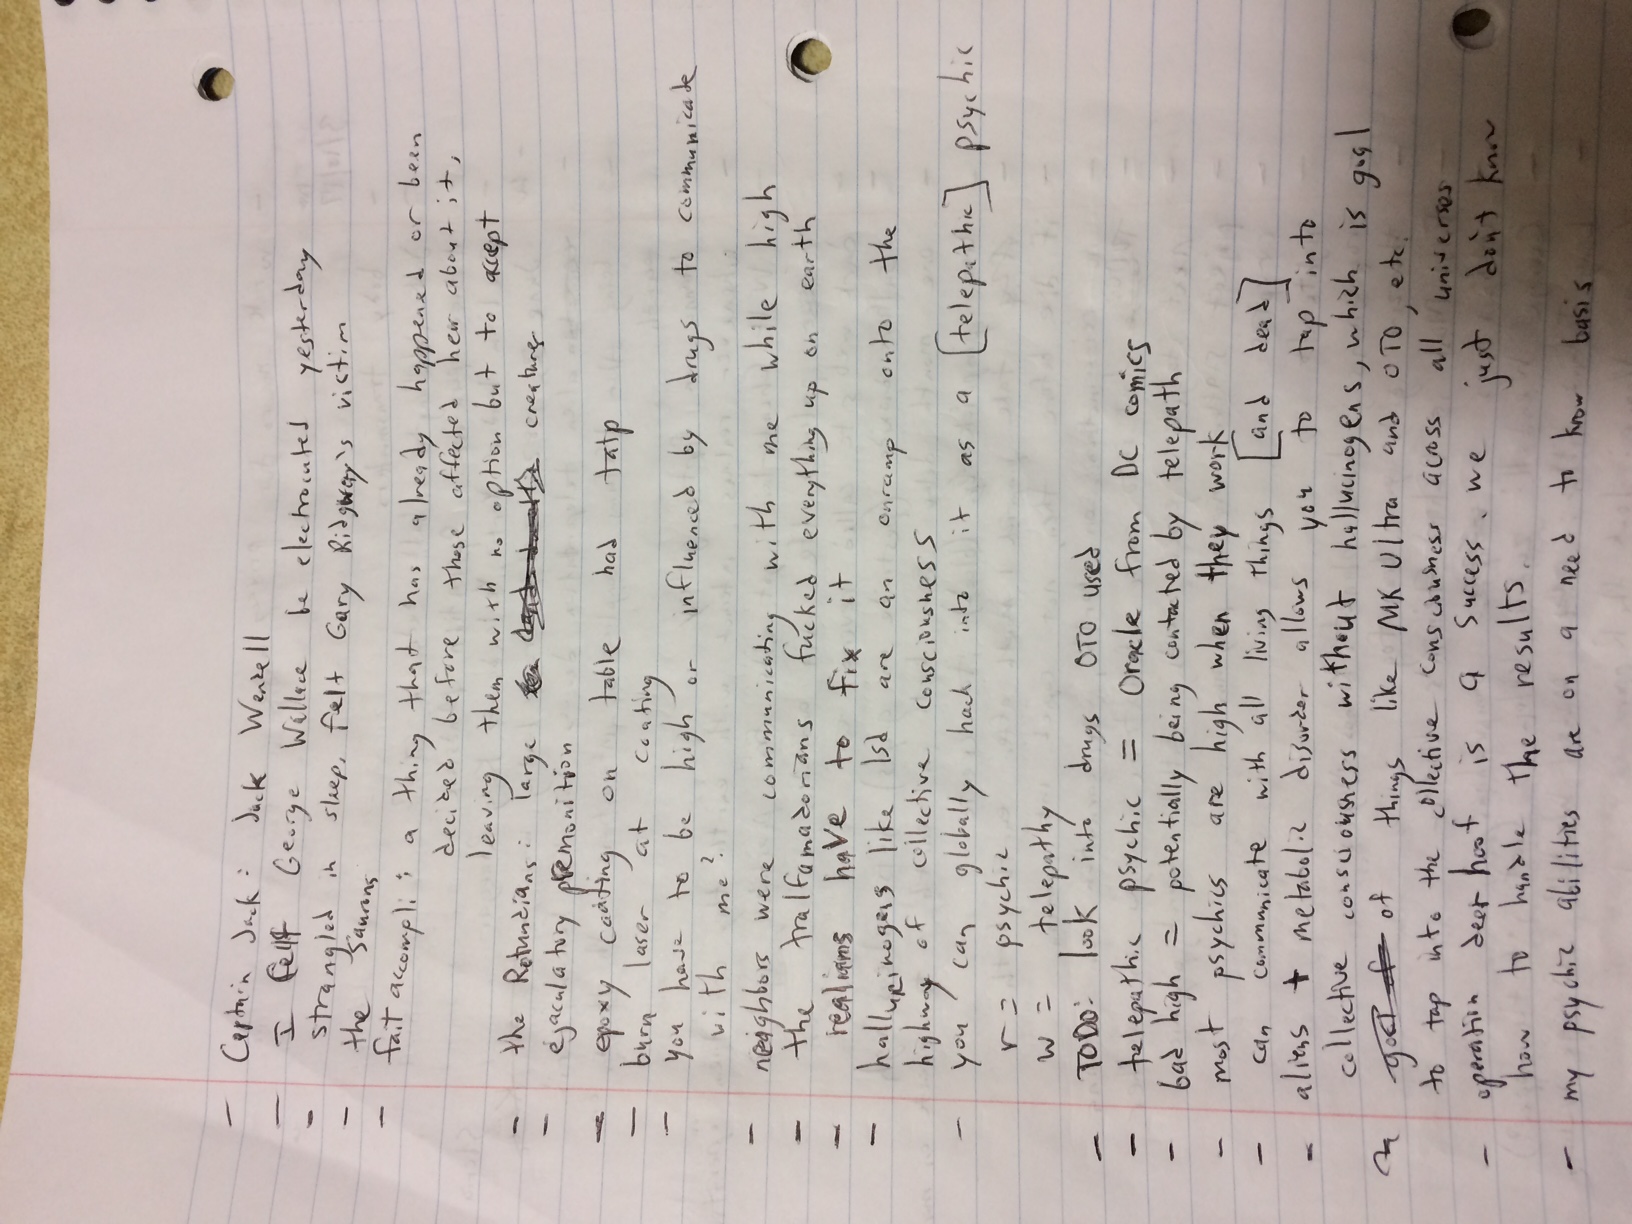 - Captain Jack: Jack Wenzell
- I felt George Wallace be electrocuted yesterday
- strangled in sleep, felt Gary Ridgway's victim
- the Saurons
- fait accompli: a thing that has already happened or been
decided before those affected hear about it,
leaving them with no option but to accept
- the Rotundians: large creatures
- ejaculatory premonition
- epoxy coating on table had tatp
- burn laser at coating
- you have to be high or influenced by drugs to communicate
with me?
- neighbors were communicating with me while high
- the tralfamadorians fucked everything up on earth
- realians have to fix it
- hallucinogens like lsd are an onramp onto the
highway of collective consciousness
- you can globally hack into it as a [telepathic] psychic
r = psychic
w = telepathy
- TODO: look into drugs OTO used
- telepathic psychic = Oracle from DC comics
- bad high = potentially being contacted by telepath
- most psychics are high when they work
- can communicate with all living things [and dead]
- aliens + metabolic disorder allows you to tap into
collective consciousness without hallucinogens, which is goal
of things like MK Ultra and OTO, etc.
to tap into the collective consciousness across all universes
- operation deer hoof is a success. we just don't know
how to handle the results.
- my psychic abilities are on a need to know basis